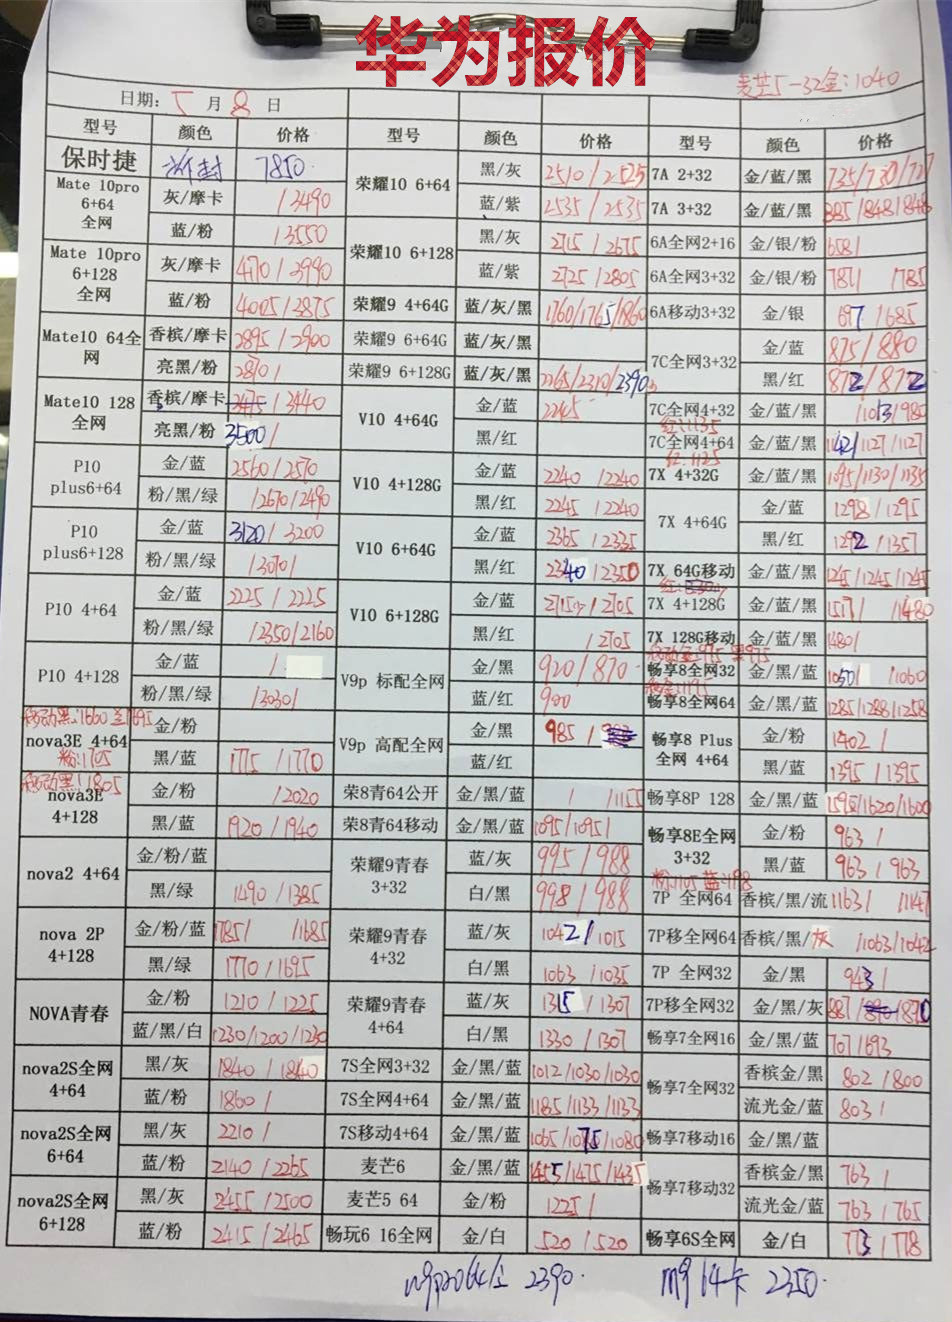 华为报价
麦芒5-32金:1040
日期: 5 月 8 日
型号 颜色 价格 型号 颜色 价格 型号 颜色 价格
保时捷 7850 荣耀10 6+64 黑/灰 2510/2525 7A 2+32 金/蓝/黑
Mate 10pro 6+64 全网 灰/摩卡 /3490 蓝/紫 2535/2535 7A 3+32 金/蓝/黑
蓝/粉 /3550 荣耀10 6+128 黑/灰 2715/2675 6A全网2+16 金/银/粉 658/
Mate 10pro 6+128 全网 灰/摩卡 蓝/紫 2725/2805 6A全网3+32 金/银/粉 787/ /785
蓝/粉 4005/3875 荣耀9 4+64G 蓝/灰/黑 1760/1765/1860 6A移动3+32 金/银 697/685
Mate10 64全网 香槟/摩卡 2895/2900 荣耀9 6+64G 蓝/灰/黑 7C全网3+32 金/蓝 875/880
亮黑/粉 2870/ 荣耀9 6+128G 蓝/灰/黑 2265/2310/2390 黑/红 872/872
Mate10 128全网 香槟/摩卡 /3440 V10 4+64G 金/蓝 2245 7C全网4+32 金/蓝/黑 /1053/980
红:1135
亮黑/粉 3500/ 黑/红 7C全网4+64 金/蓝/黑 1142/1127/1127
红:1125
P10 plus6+64 金/蓝 2560/2570 V10 4+128G 金/蓝 2240/2240 7X 4+32G 金/蓝/黑 1095/1130/1135
粉/黑/绿 /2670/2490 黑/红 2245/2240 7X 4+64G 金/蓝 1298/1295
P10 plus6+128 金/蓝 3120/3200 V10 6+64G 金/蓝 2365/2335 黑/红 1292/1357
粉/黑/绿 /3070/ 黑/红 2340/2350 7X 64G移动 金/蓝/黑 1245/1245/1245
P10 4+64 金/蓝 2225/2225 V10 6+128G 金/蓝 2715/2705 7X 4+128G 金/蓝/黑 1517/ /1480
粉/黑/绿 /2350/2160 黑/红 /2705 7X 128G移动 金/蓝/黑 1480/
P10 4+128 金/蓝 / V9p 标配全网 金/黑 920/870 畅享8全网32 金/黑/蓝 1050/ /1060
粉/黑/绿 /3030/ 蓝/红 900 畅享8全网64 金/黑/蓝 1285/1288/1258
移动黑:1660 金1695
nova3E 4+64 金/粉 V9p 高配全网 金/黑 985/ 畅享8 Plus 全网 4+64 金/粉 1402/
粉:1705
黑/蓝 1775/1770 蓝/红 黑/蓝 1395/1395
移动黑:1805
nova3E 4+128 金/粉 /2020 荣8青64公开 金/黑/蓝 / /1155 畅享8P 128 金/黑/蓝 1595/1620/1600
黑/蓝 1920/1940 荣8青64移动 金/黑/蓝 1095/1095/ 畅享8E全网 3+32 金/粉 963/
nova2 4+64 金/粉/蓝 荣耀9青春 3+32 蓝/灰 995/988 黑/蓝 963/963
粉:1105 蓝:1198
黑/绿 1490/1385 白/黑 998/988 7P 全网64 香槟/黑/流 1163/ /1147
nova 2P 4+128 金/粉/蓝 1785/ /1685 荣耀9青春 4+32 蓝/灰 1042/1015 7P移全网64 香槟/黑/灰 /1063/1042
黑/绿 1770/1695 白/黑 1063/1035 7P 全网32 金/黑 943/
NOVA青春 金/粉 1210/1225 荣耀9青春 4+64 蓝/灰 1315/1307 7P移全网32 金/黑/灰 887/ /870
蓝/黑/白 1230/1200/1230 白/黑 1330/1307 畅享7全网16 金/黑/蓝 707/693
nova2S全网 4+64 黑/灰 1840/1840 7S全网3+32 金/黑/蓝 1012/1030/1030 畅享7全网32 香槟金/黑 802/800
蓝/粉 1860/ 7S全网4+64 金/黑/蓝 1165/1133/1133 流光金/蓝 803/
nova2S全网 6+64 黑/灰 2210/ 7S移动4+64 金/黑/蓝 1065/1075/1080 畅享7移动16 金/黑/蓝
蓝/粉 2140/2265 麦芒6 金/黑/蓝 1455/1475/1435 畅享7移动32 香槟金/黑 763/
nova2S全网 6+128 黑/灰 2455/2500 麦芒5 64 金/粉 1225/ 流光金/蓝 763/765
蓝/粉 2415/2465 畅玩6 16全网 金/白 520/520 畅享6S全网 金/白 773/778
2390. m9 64卡 2350.